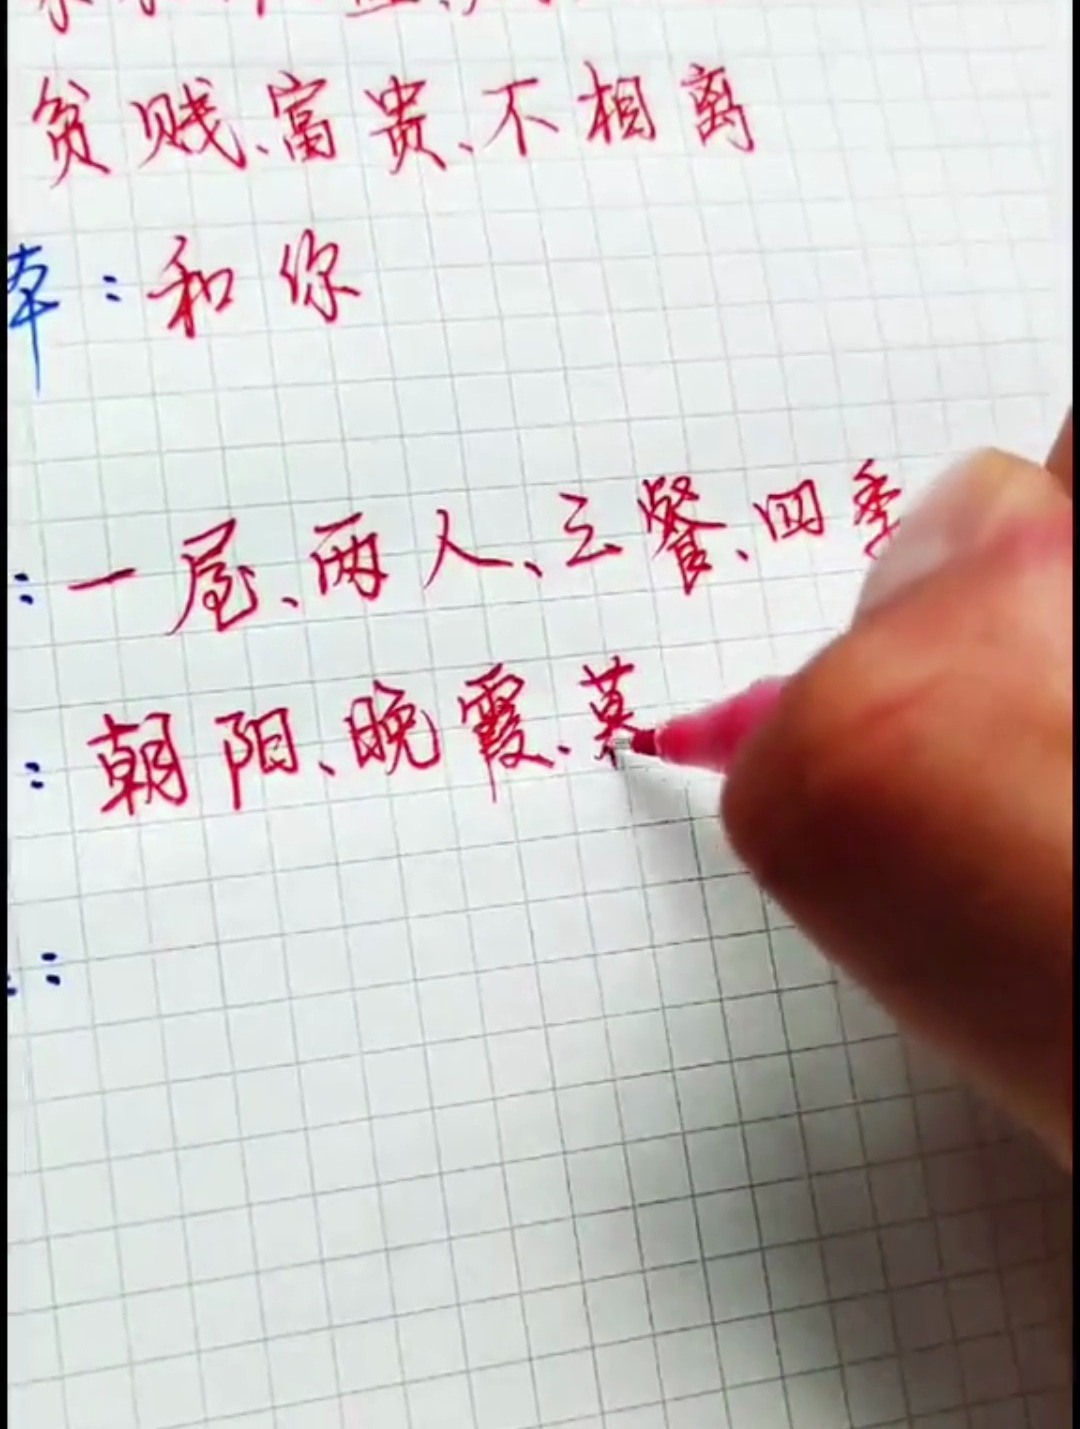 贫贱、富贵、不相离
草：和你
：一屋、两人、三餐、四季
：朝阳、晚霞、暮
：